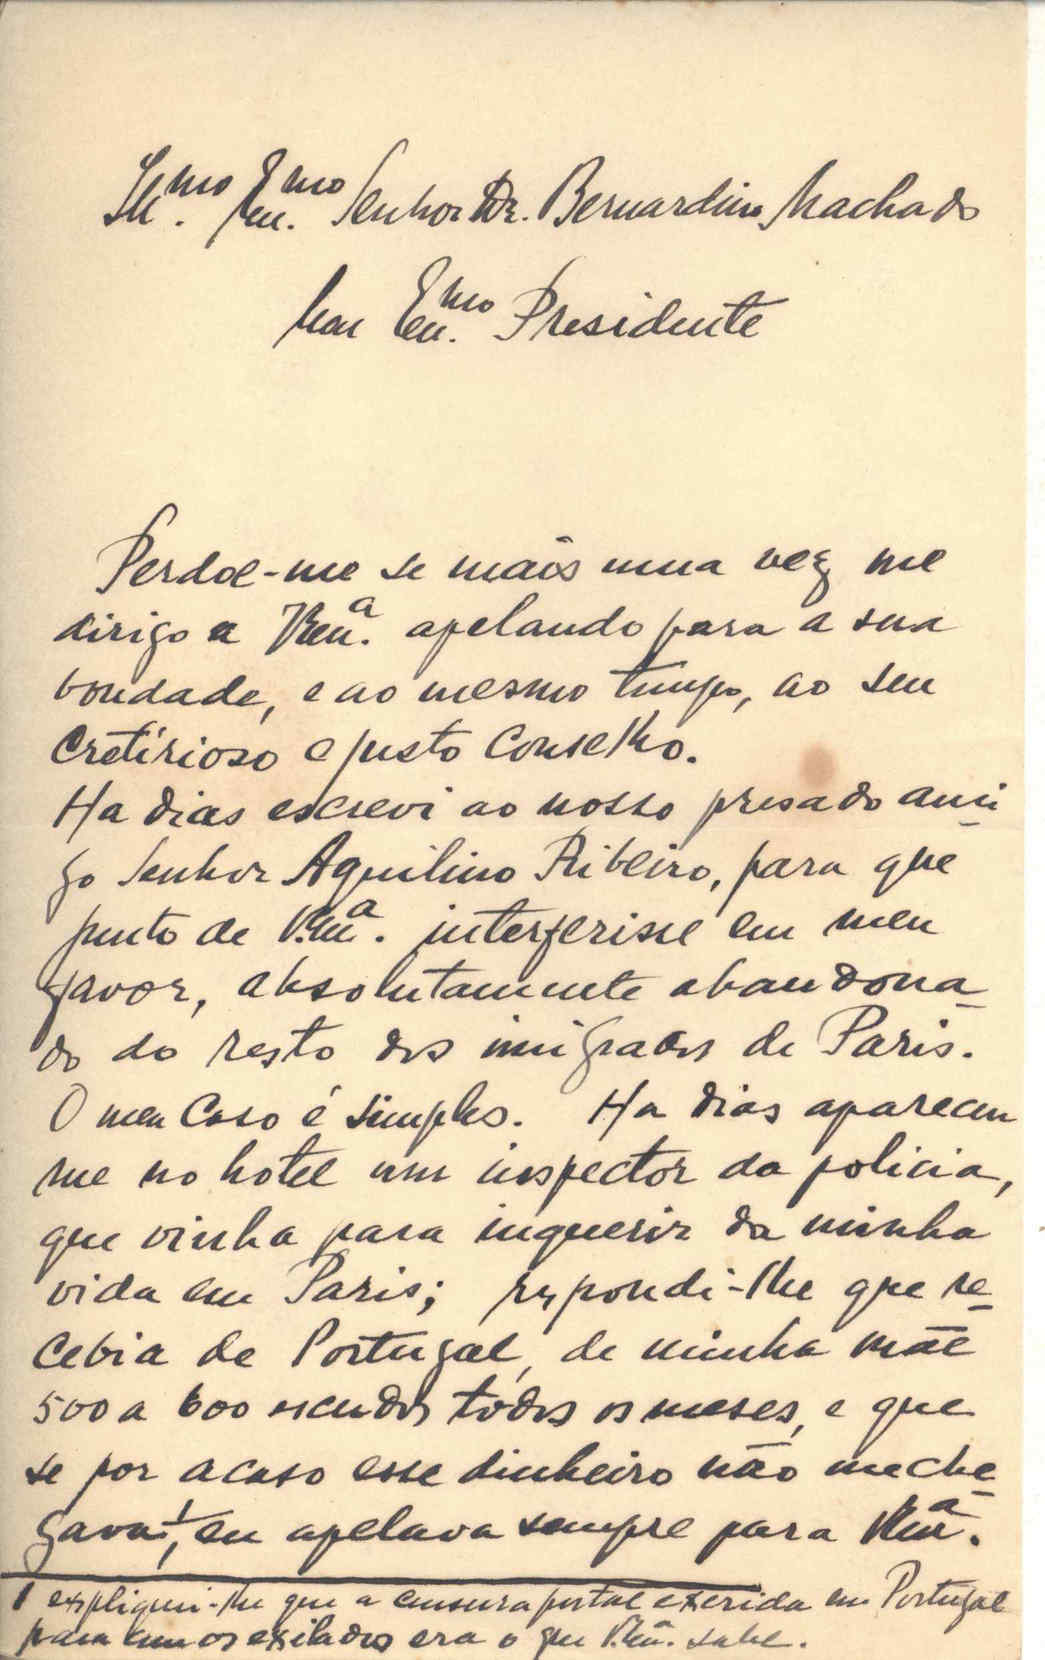 Il.mo Ex.mo Senhor Dr. Bernardino Machado
Meu Ex.mo Presidente
Perdoe-me se mais uma vez me
dirigo a V.Ex.a apelando para a sua
bondade, e ao mesmo tempo, ao seu
cretirioso e justo conselho.
Ha dias escrevi ao nosso presado ami-
go Senhor Aquilino Ribeiro, para que
junto de V.Ex.a interferisse em meu
favor, absolutamente abandona-
do do resto dos imigrados de Paris.
O meu caso é simples. Ha dias apareceu
me no hotel um inspector da policia,
que vinha para inquerir da minha
vida em Paris; respondi-lhe que re-
cebia de Portugal, de minha mãe
500 a 600 escudos todos os meses, e que
se por acaso esse dinheiro não me che-
gava¹, eu apelava sempre para V.Ex.a.
1 expliquei-lhe que a censura postal exercida em Portugal
para com os exilados era o que V.Ex.a sabe.